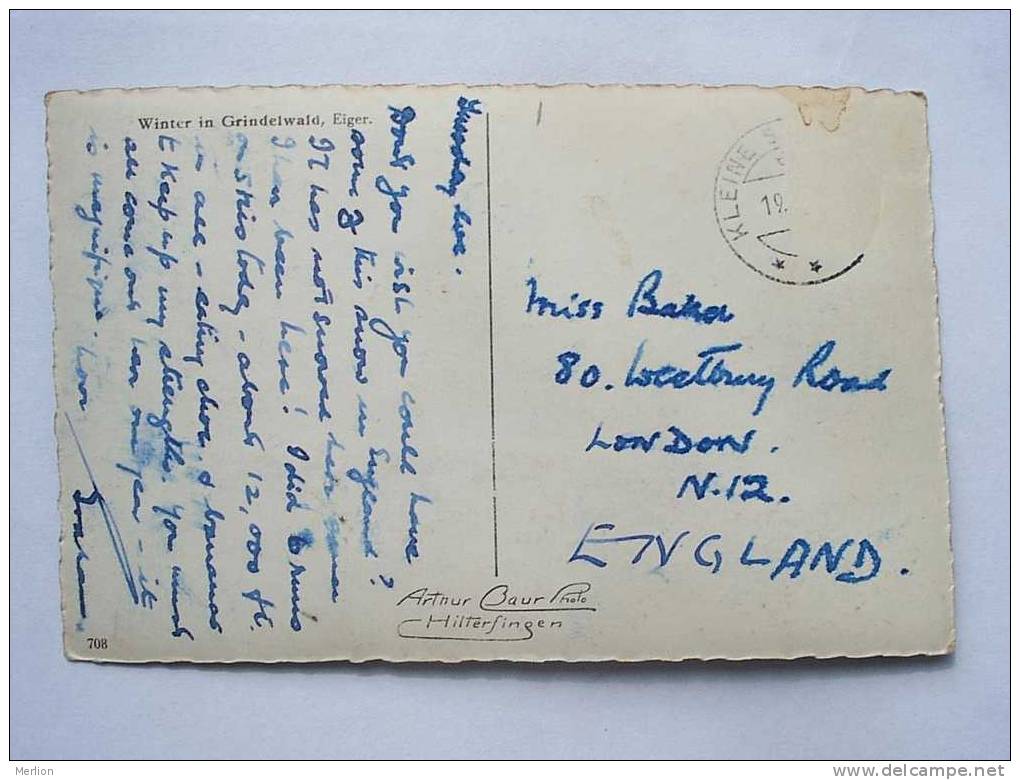 Winter in Grindelwald, Eiger.
Tuesday Eve.
Don't you wish you could have
some of this snow in England?
It has not snowed here since
I have been here! I did 6 runs
on skis today - about 12,000 ft.
in all - eating choc. & bananas
to keep up my strength. You must
all come out here one year - it
is magnifique. Love
708
KLEINE
19.
Miss Baker
80. Road
LONDON.
N.12.
ENGLAND.
Arthur Baur Photo
Hilterfingen
Merlion
www.delcampe.net